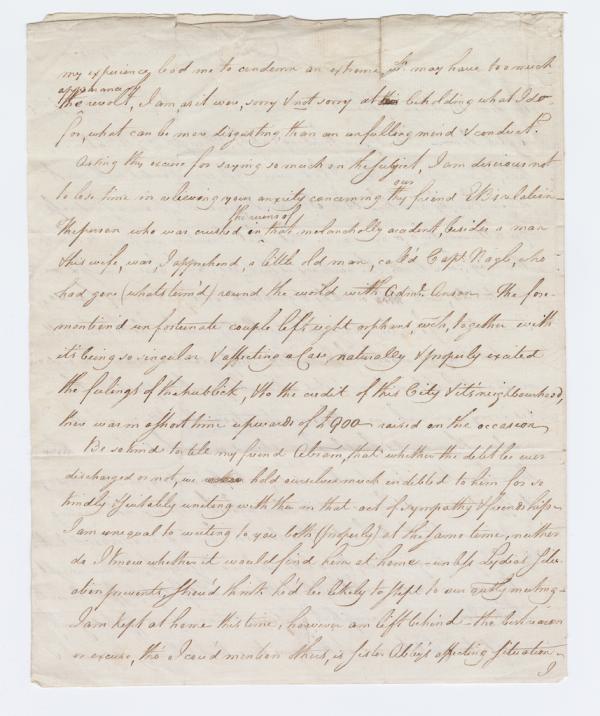 my experience, bad me to condemn an extreme, It may have too much
appearance of
the revolt, I am, as it were, sorry & not sorry at beholding what I do
for, what can be more disgusting than an unfeeling mind & conduct?
Asking thy excuse for saying so much on the subject, I am desirous not
to lose time in relieving your anxiety concerning thy friend EB's relation—
our
the ruins of
The person who was crushed in that melancholly accident, besides a man
& his wife, was, I apprehend, a little old man, call'd Capt. Nagle, who
had gone (what's term'd) round the world with Adml. Anson — The fore-
mention'd unfortunate couple left eight orphans, wch, together with
it's being so singular & affecting a Case naturally & properly excited
the feelings of the publick, & to the credit of this City & it's neighbourhood,
there was in a short time upwards of £900 raised on the occasion
Be so kind to tell my friend Abram, that whether the debt be ever
discharged or not, we hold ourselves much indebted to him for so
kindly & suitably uniting with thee in that act of sympathy & friendship—
I am unequal to writing to you both (properly) at the same time, neither
do I know whether it would find him at home — unless Lydia's situ-
ation prevents, I shou'd think he'd be likely to step to our meeting—
I am kept at home this time, however am left behind — the best reason
or excuse, tho' I cou'd mention others, is Sister Abby's affecting situation—
I